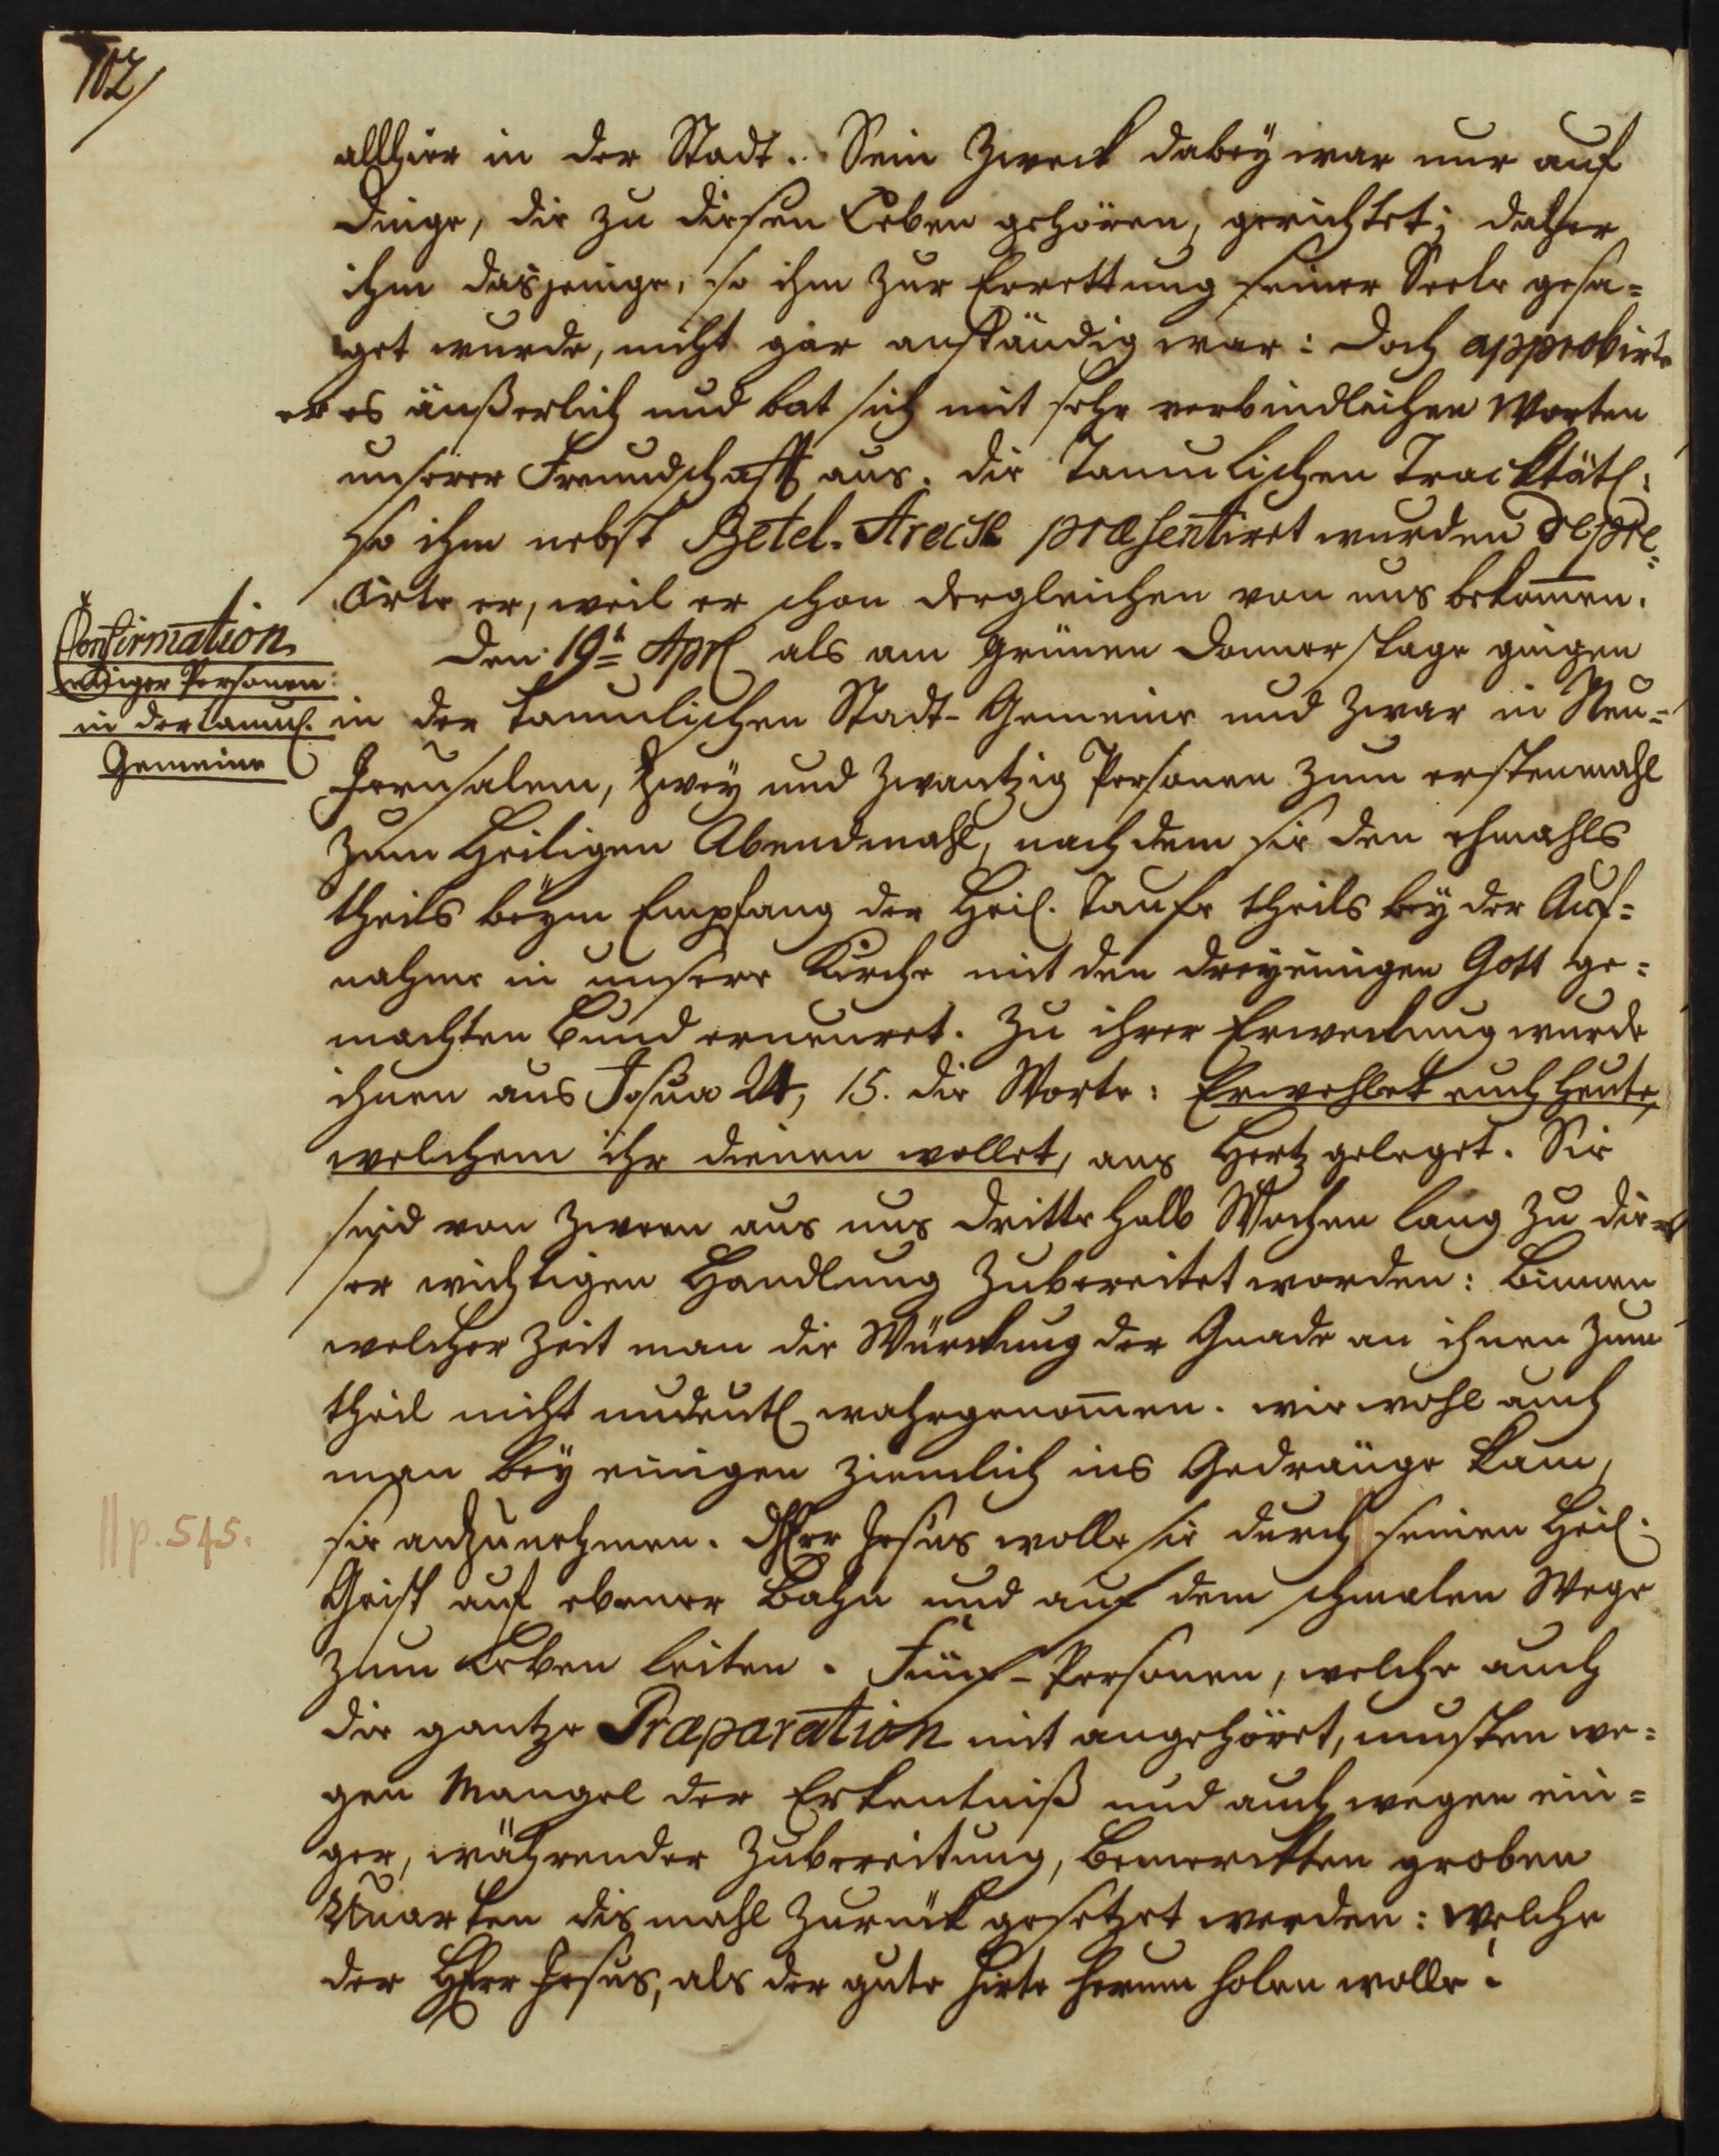 102/
allhier in der Stadt. Sein Zweck dabey war nur auf
Dinge, die zu diesen Leben gehören, gerichtet; daher
ihm dasjenige, so ihm zur Errettung seiner Seele gesa=
get wurde, nicht gar anständig war: Doch approbirte
er es äußerlich und bat sich mit sehr verbindlichen Worten
unserer Freundschafft aus. die Tamulischen Tracktätl:
so ihm nebst Betel-Areck præsentiret wurden depre=
cirte er, weil er schon dergleichen von uns bekom̅en.
Confirmation
einiger Personen
in der Tamul.
Gemeine
Den 19t April als am Grünen Donnerstage gingen
in der Tamulischen Stadt-Gemeine und zwar in Neu=
Jerusalem, Zwey und Zwantzig Personen zum erstenmahl
zum Heiligen Abendmahl, nach dem sie den ehmahls
theils beym Empfang der Heil. Taufe theils bey der Auf=
nahme in unsere Kirche mit den dreyeinigen Gott ge=
machten Bund erneuret. Zu ihrer Erweckung wurde
ihnen aus Josua 24, 15. die Worte: Erwehlet euch heute,
welchem ihr dienen wollet, ans Hertz geleget. Sie
sind von Zween aus uns dritte halb Wochen lang zu die=
ser wichtigen Handlung zubereitet worden: Binnen
welcher Zeit man die Würckung der Gnade an ihnen zum
theil nicht undeutl. wahrgenom̅en. wie wohl auch
man bey einigen ziemlich ins Gedränge kam,
sie anzunehmen. Der HErr Jesus wolle sie durch seinen Heil.
||p. 545.
Geist auf ebener Bahn und auf dem schmalen Wege
zum Leben leiten. Fünf-Personen, welche auch
die gantze Præparation mit angehöret, musten we=
gen Mangel der Erkentniß und auch wegen eini=
ger, währender Zubereitung, bemerckten groben
Unarten dis mahl zurück gesetzet werden: welche
der HErr Jesus, als der gute Hirte herum holen wolle!